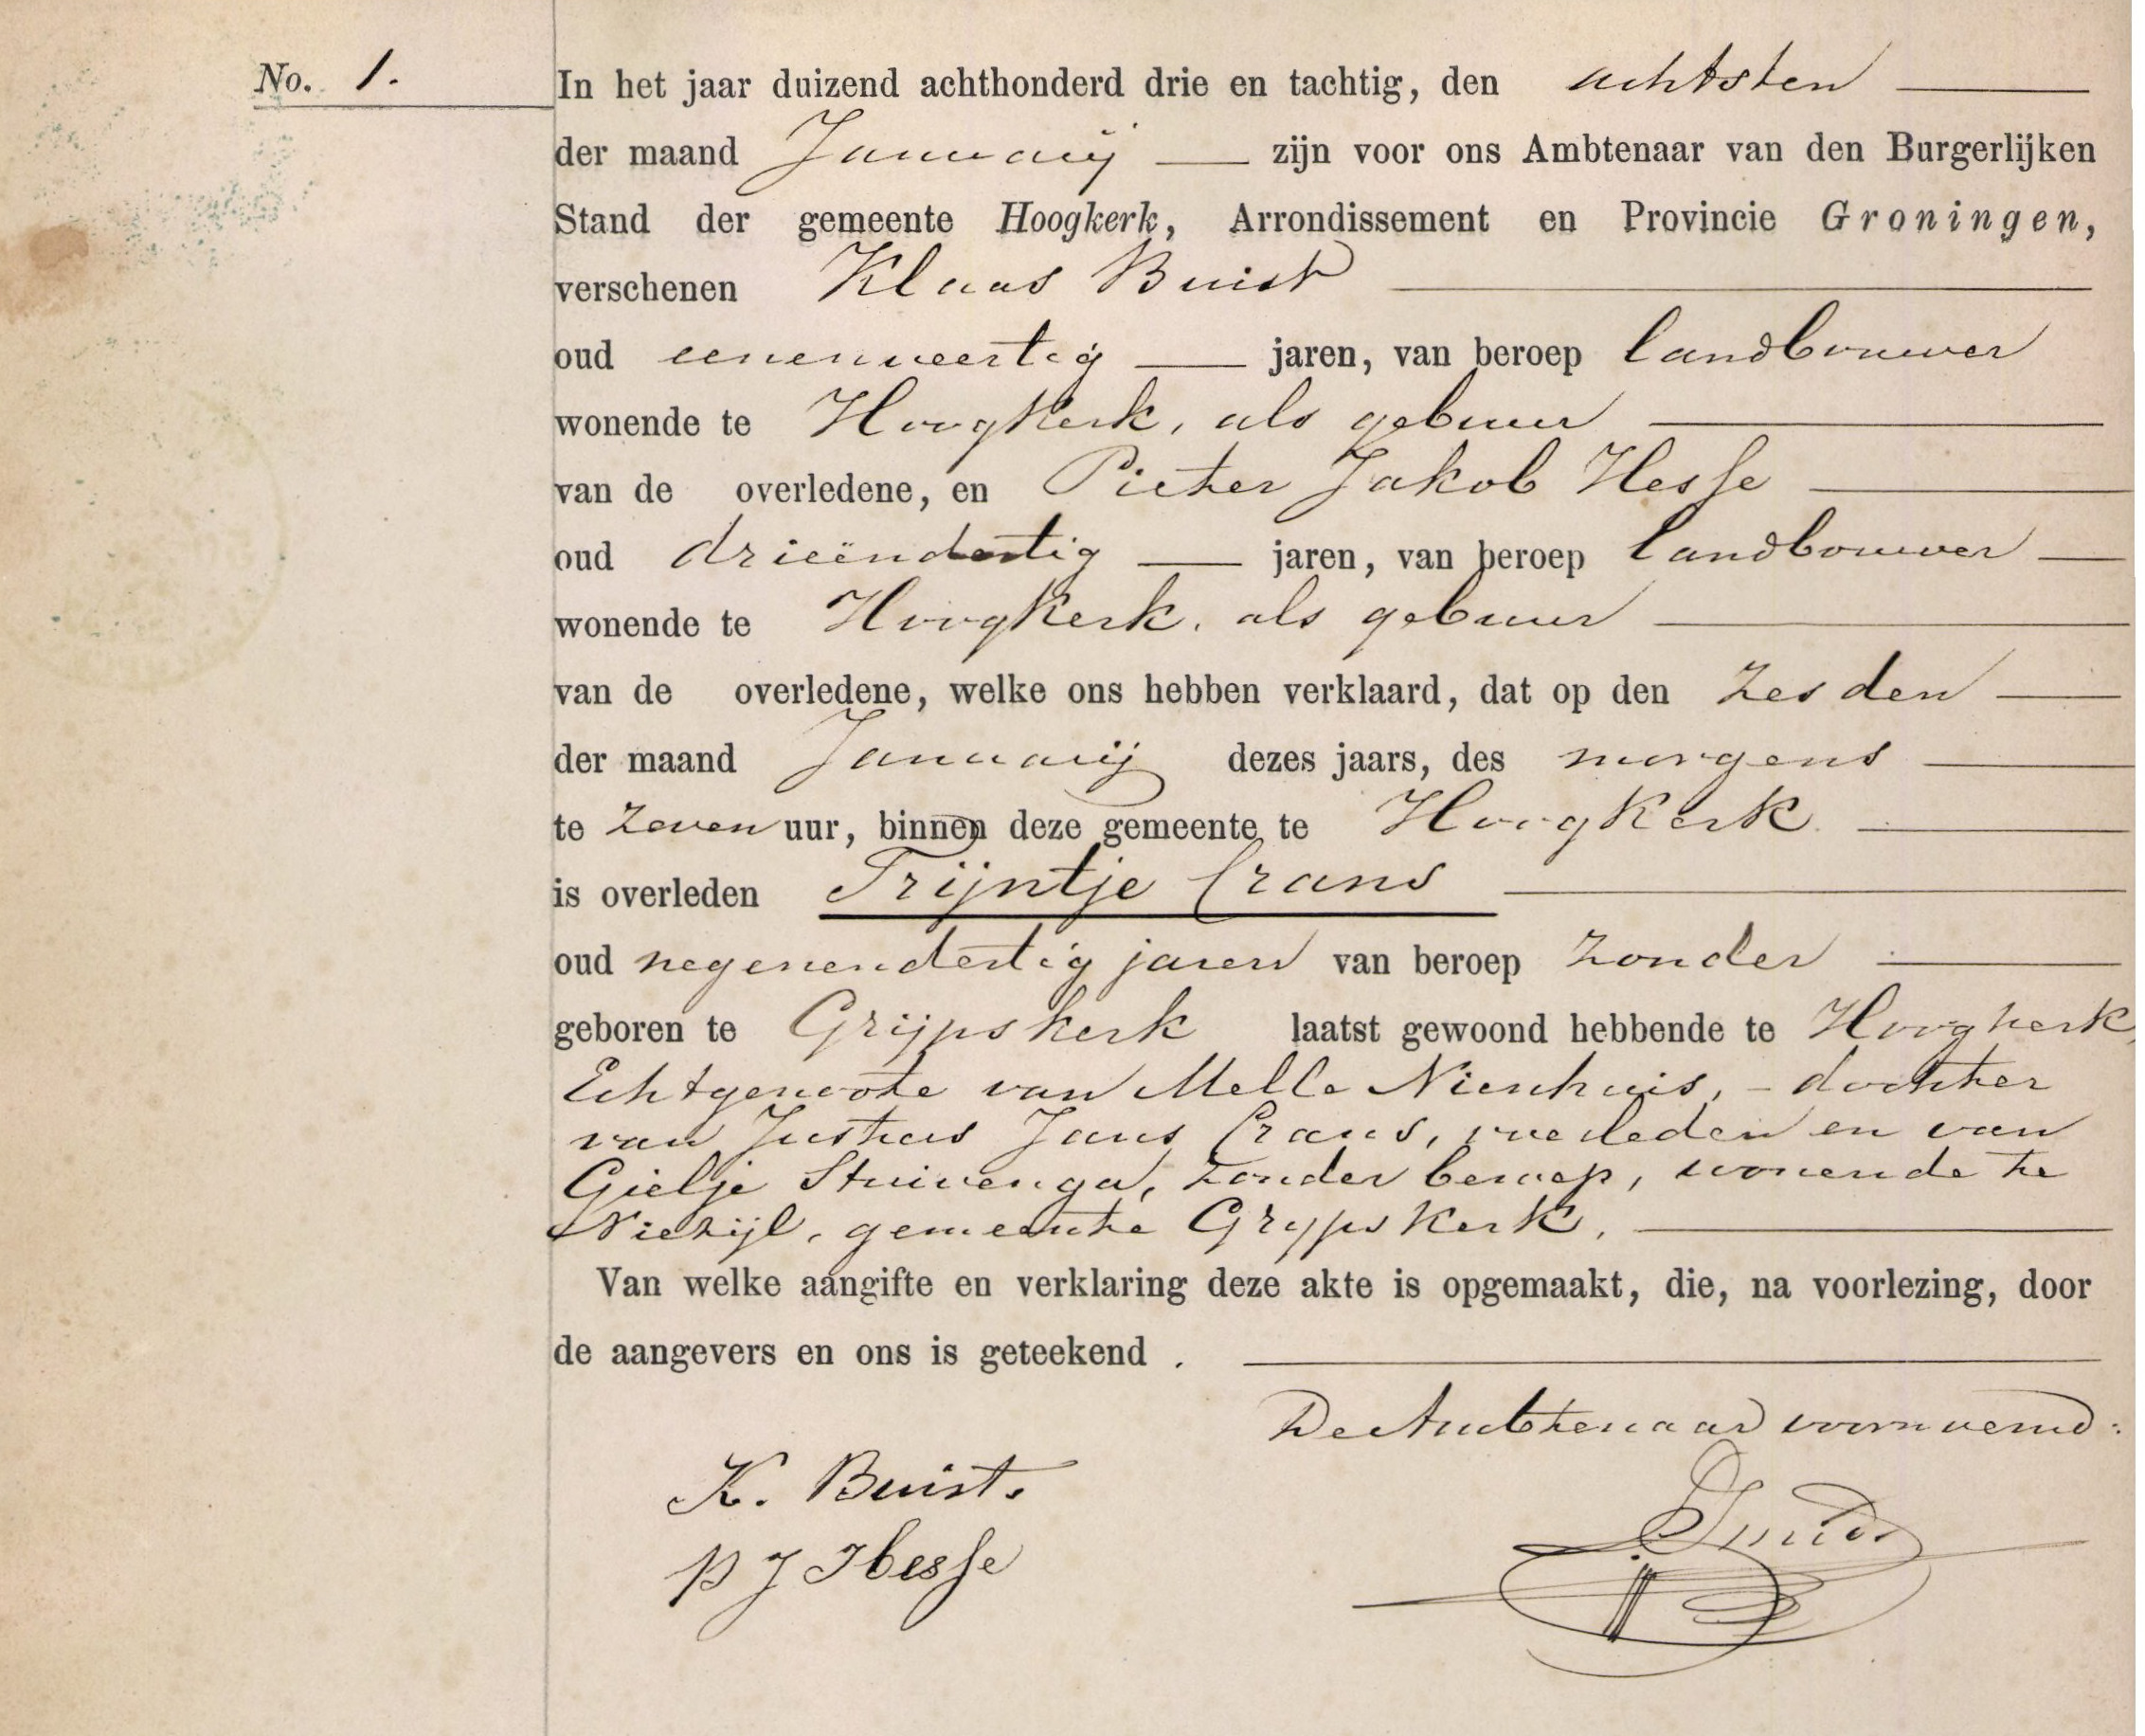 No. 1.
In het jaar duizend achthonderd drie en tachtig, den achtsten
der maand Januarij zijn voor ons Ambtenaar van den Burgerlijken
Stand der gemeente Hoogkerk, Arrondissement en Provincie Groningen,
verschenen Klaas Buist
oud eenenveertig jaren, van beroep landbouwer
wonende te Hoogkerk, als gebuur
van de overledene, en Pieter Jakob Hesse
oud drieëndertig jaren, van beroep landbouwer
wonende te Hoogkerk, als gebuur
van de overledene, welke ons hebben verklaard, dat op den zesden
der maand Januarij dezes jaars, des morgens
te zeven uur, binnen deze gemeente te Hoogkerk
is overleden Trijntje Crans
oud negenendertig jaren van beroep zonder
geboren te Grijpskerk laatst gewoond hebbende te Hoogkerk,
Echtgenoote van Melle Nienhuis, - dochter
van Justus Jans Crans, overleden en van
Gielje Stuivenga, zonder beroep, wonende te
Niezijl, gemeente Grypskerk.
Van welke aangifte en verklaring deze akte is opgemaakt, die, na voorlezing, door
de aangevers en ons is geteekend .
De Ambtenaar voornoemd:
K. Buist.
P J Hesse